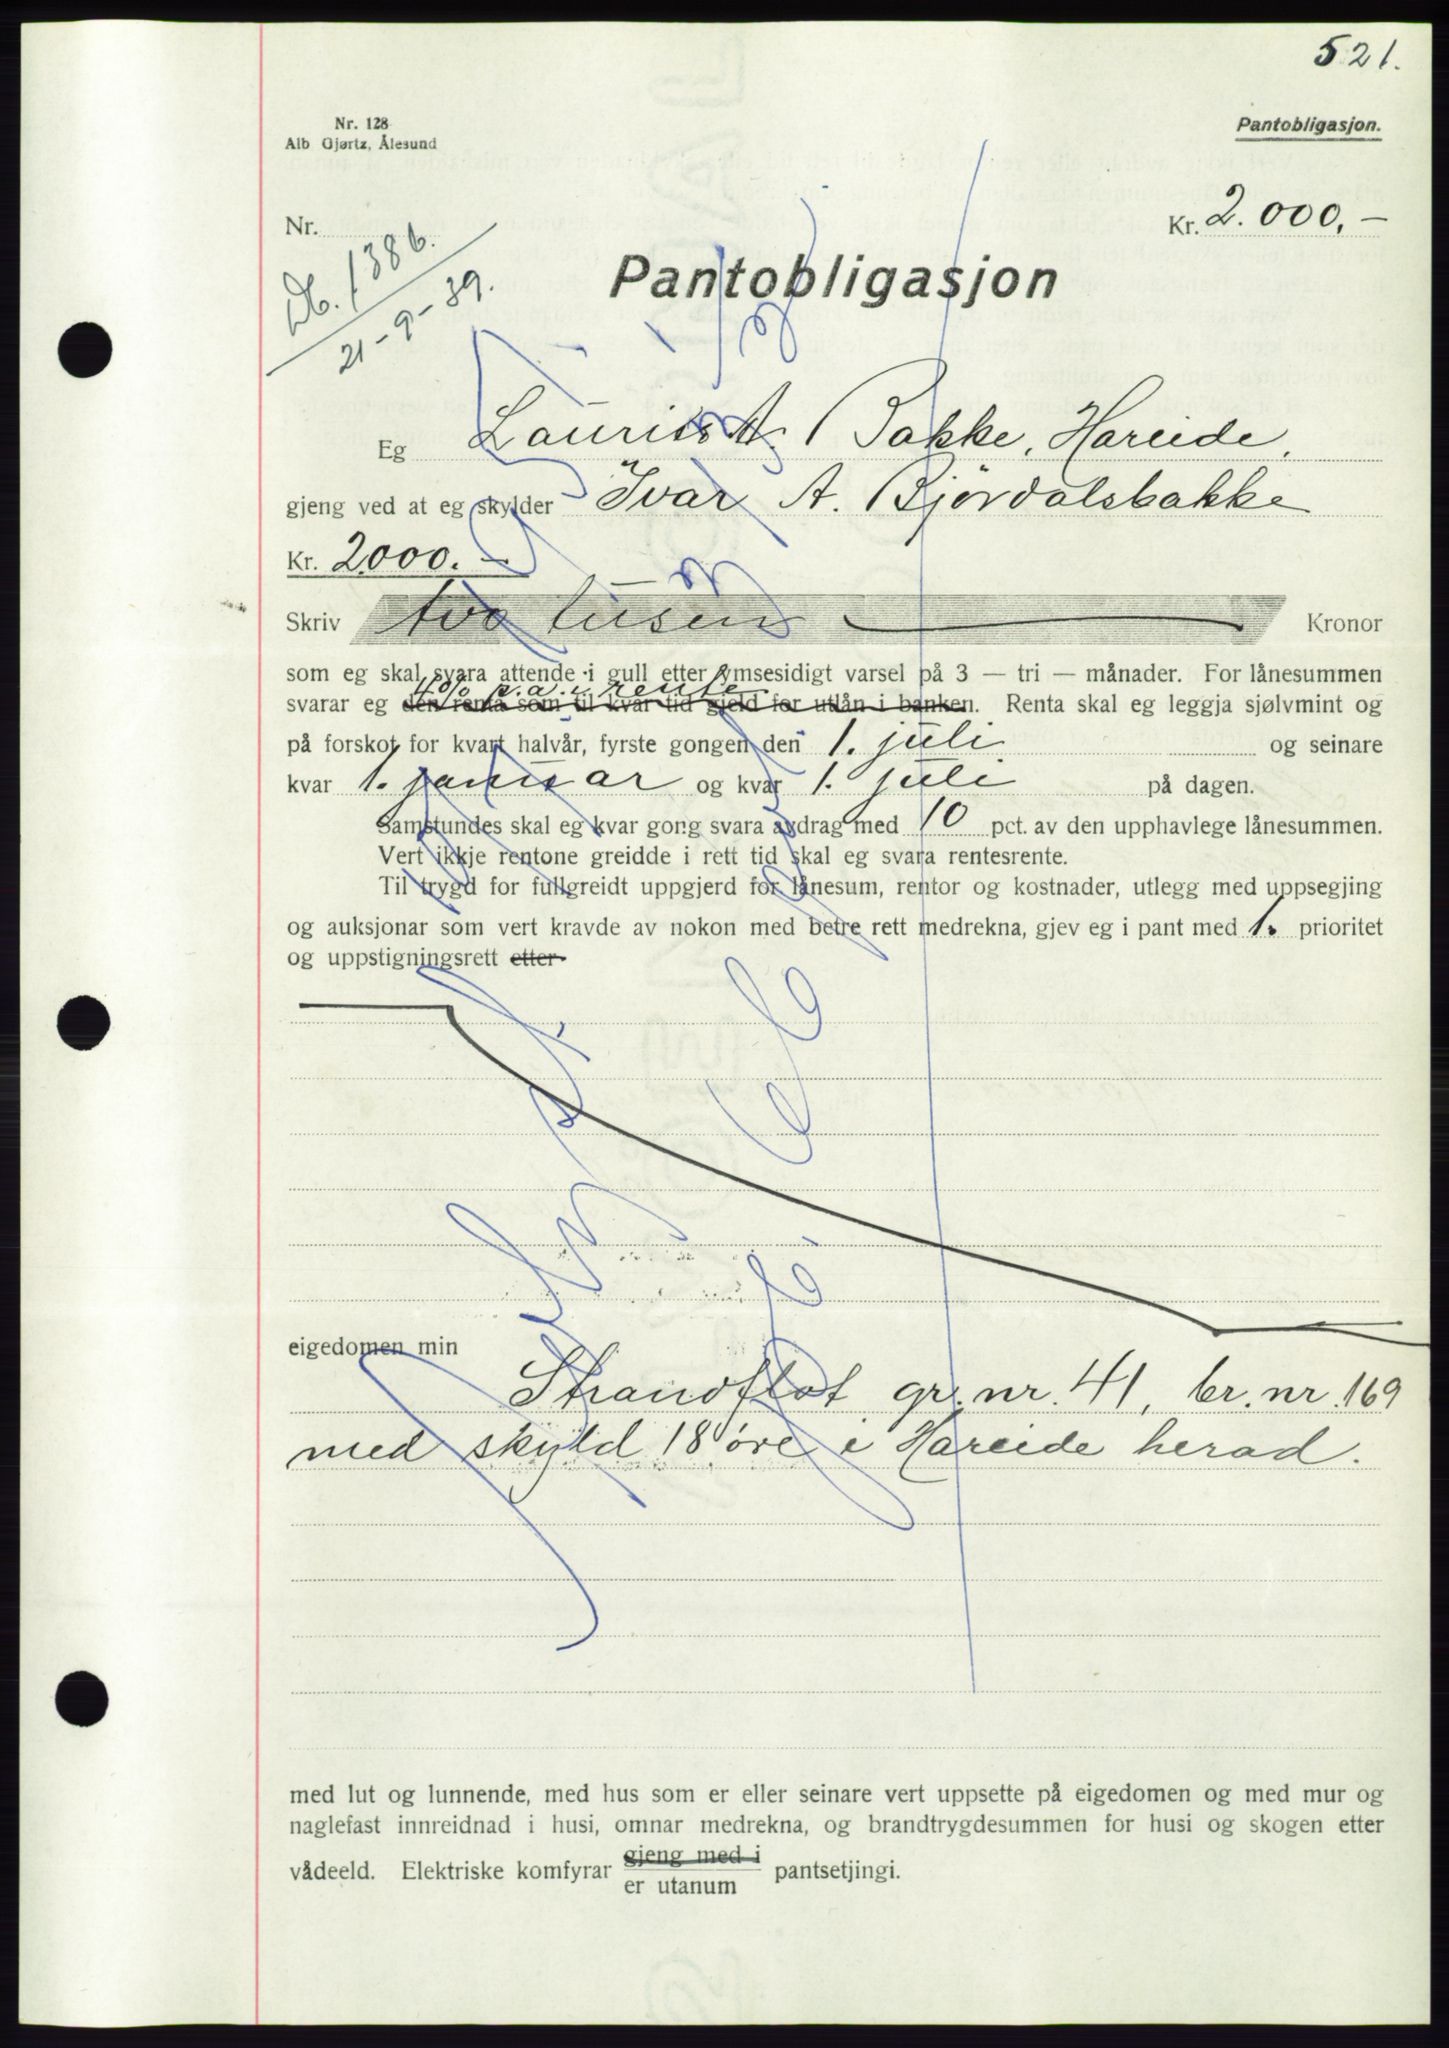 521.
Nr. 128
Alb Gjørtz, Ålesund
Pantobligasjon.
Nr.
Kr. 2.000,-
Db. 1386.
21-9-39.
Pantobligasjon
Eg Laurits A. Bakke, Hareide,
gjeng ved at eg skylder Ivar A. Björdalsbakke
Kr. 2000.-
Skriv tvo tusen Kronor
som eg skal svara attende i gull etter ymsesidigt varsel på 3 — tri — månader. For lånesummen
4% p.a. i rente
svarar eg den renta som til kvar tid gjeld for utlån i banken. Renta skal eg leggja sjølvmint og
på forskot for kvart halvår, fyrste gongen den 1. juli og seinare
kvar 1. januar og kvar 1. juli på dagen.
Samstundes skal eg kvar gong svara avdrag med 10 pct. av den upphavlege lånesummen.
Vert ikkje rentone greidde i rett tid skal eg svara rentesrente.
Til trygd for fullgreidt uppgjerd for lånesum, rentor og kostnader, utlegg med uppsegjing
og auksjonar som vert kravde av nokon med betre rett medrekna, gjev eg i pant med 1. prioritet
og uppstigningsrett etter
eigedomen min
Strandflot gr. nr. 41, br. nr. 169
med skyld 18 øre i Hareide herad.
med lut og lunnende, med hus som er eller seinare vert uppsette på eigedomen og med mur og
naglefast innreidnad i husi, omnar medrekna, og brandtrygdesummen for husi og skogen etter
vådeeld. Elektriske komfyrar gjeng med i pantsetjingi.
er utanum